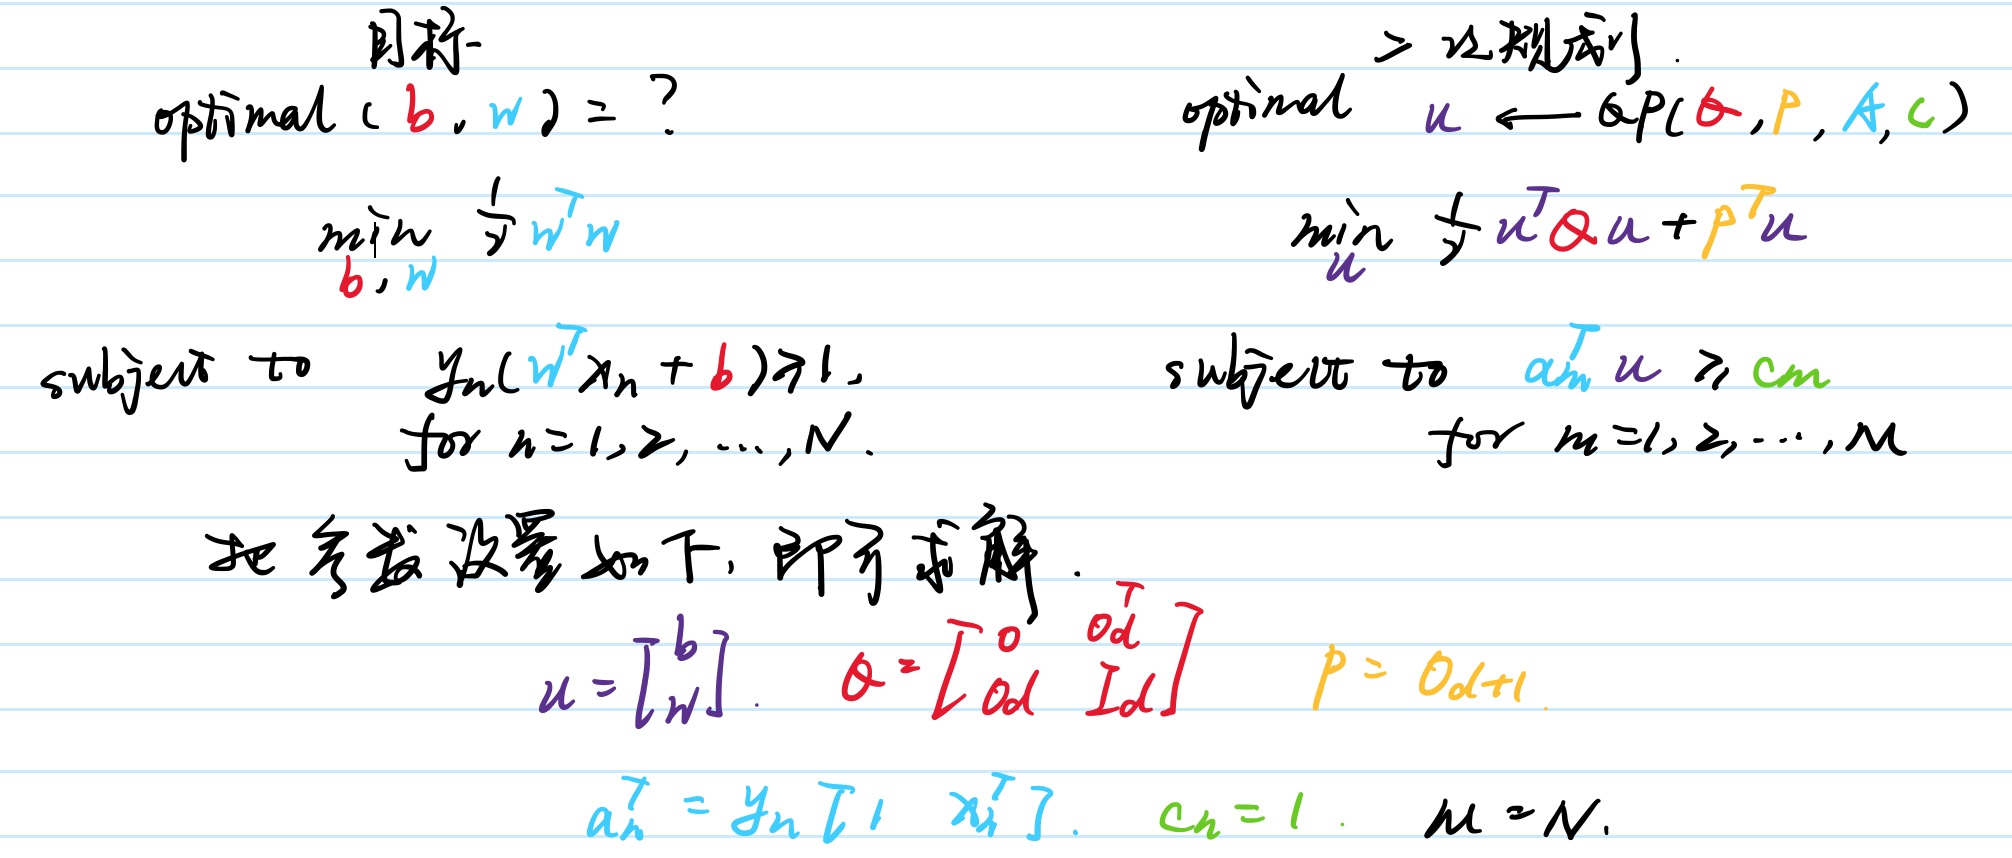 目标
optimal ( b , w ) = ?
min 1/2 wᵀw
b, w
subject to yn(wᵀxn + b) ≥ 1,
for n = 1, 2, ..., N.
二次规划.
optimal u ← QP(Q, P, A, C)
min 1/2 uᵀQu + Pᵀu
u
subject to amᵀ u ≥ cm
for m = 1, 2, ..., M
把参数设置如下, 即可求解.
u = [ b w ]. Q = [ 0 0dᵀ 0d Id ] P = 0d+1.
anᵀ = yn [ 1 xnᵀ ]. cn = 1. M = N.